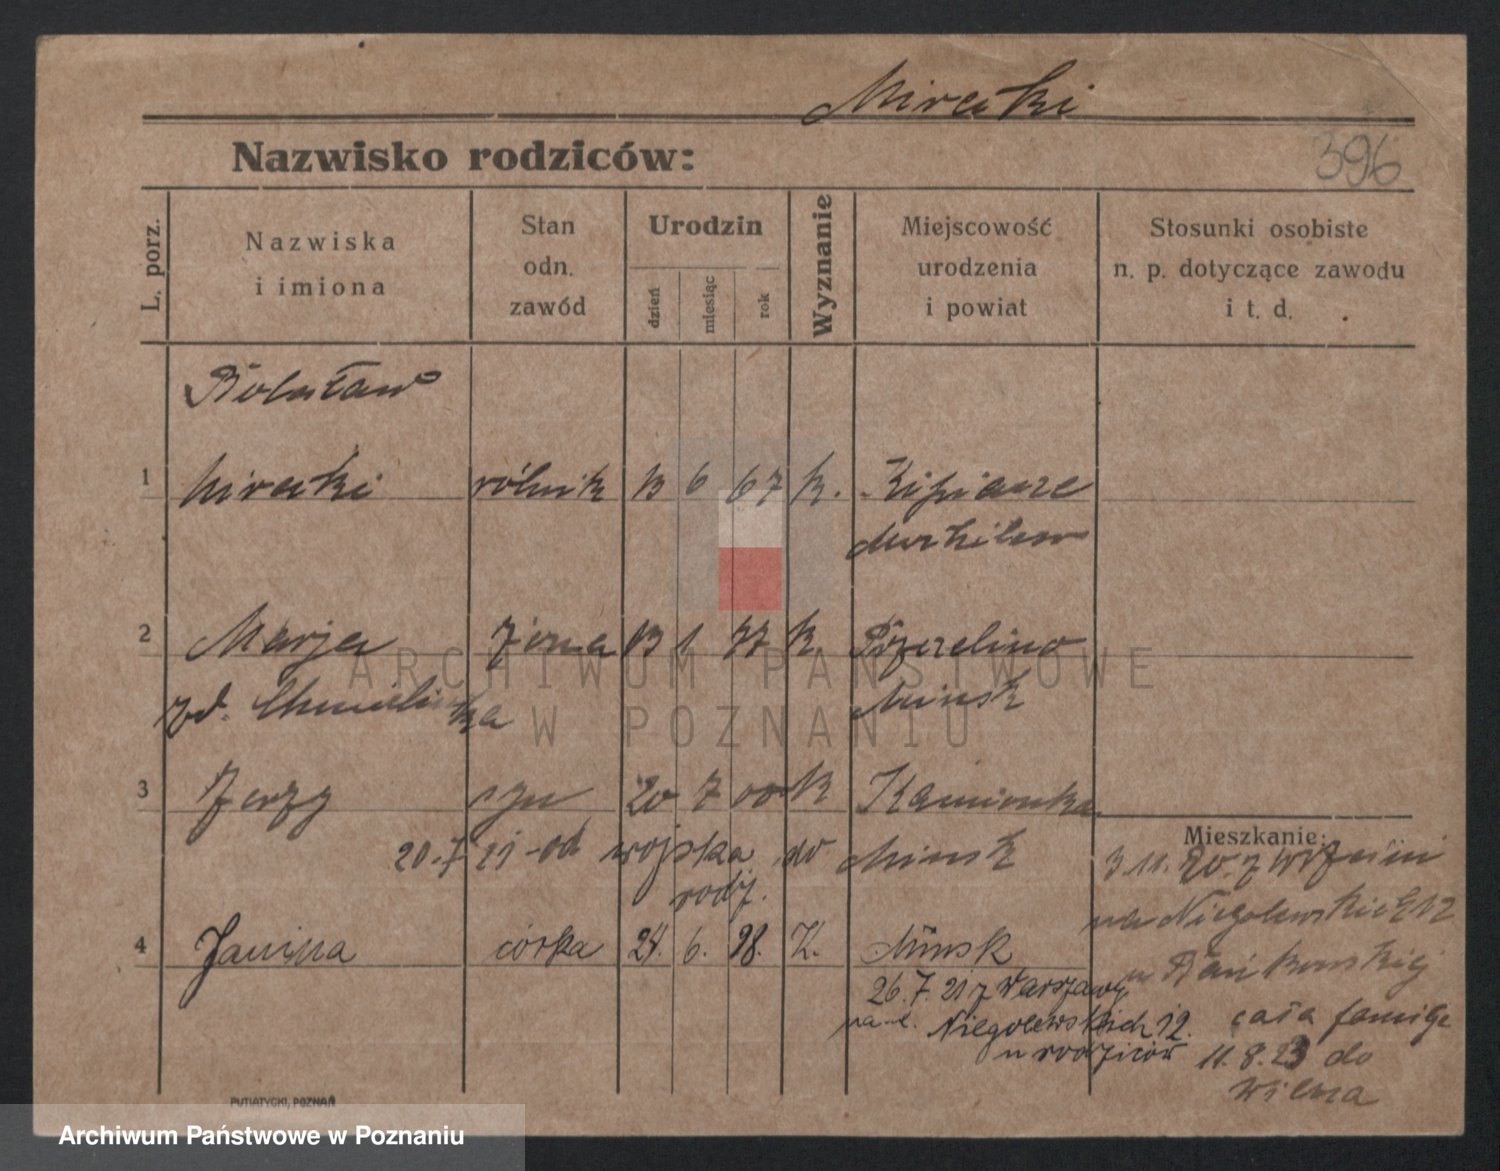 Mirecki
Nazwisko rodziców:
396
L. porz.
Nazwiska
i imiona
Stan
odn.
zawód
Urodzin
dzień
miesiąc
rok
Wyznanie
Miejscowość
urodzenia
i powiat
Stosunki osobiste
n. p. dotyczące zawodu
i t. d.
Bolesław
1 Mirecki rólnik 13 6 67 k.
2 Marja żona 13 1 77 k.
Minsk
zd.
3 Jerzy syn 20 7 00 k Kamionka
20.7 21 - od wojska do Minsk
rodz.
4 Janina córka 24. 6. 98. K. Minsk
26.7.21 z Warszawy
na u. Niegolewskich 12.
u rodziców
Mieszkanie:
3.11.20. z Wrześni
na Niegolewskich 12
u
cała familje
11.8.23 do
Wilna
PUTIATYCKI, POZNAŃ
ARCHIWUM PAŃSTWOWE
W POZNANIU
Archiwum Państwowe w Poznaniu